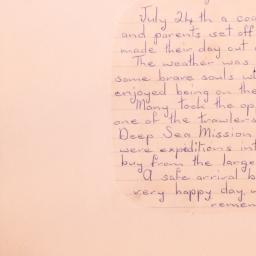 July 24th a coa
and parents set off
made their day out
The weather was
some brave souls w
enjoyed being on the
Many took the op
one of the trawlers
Deep Sea Mission
were expeditions int
buy from the large
A safe arrival b
very happy day w
remem